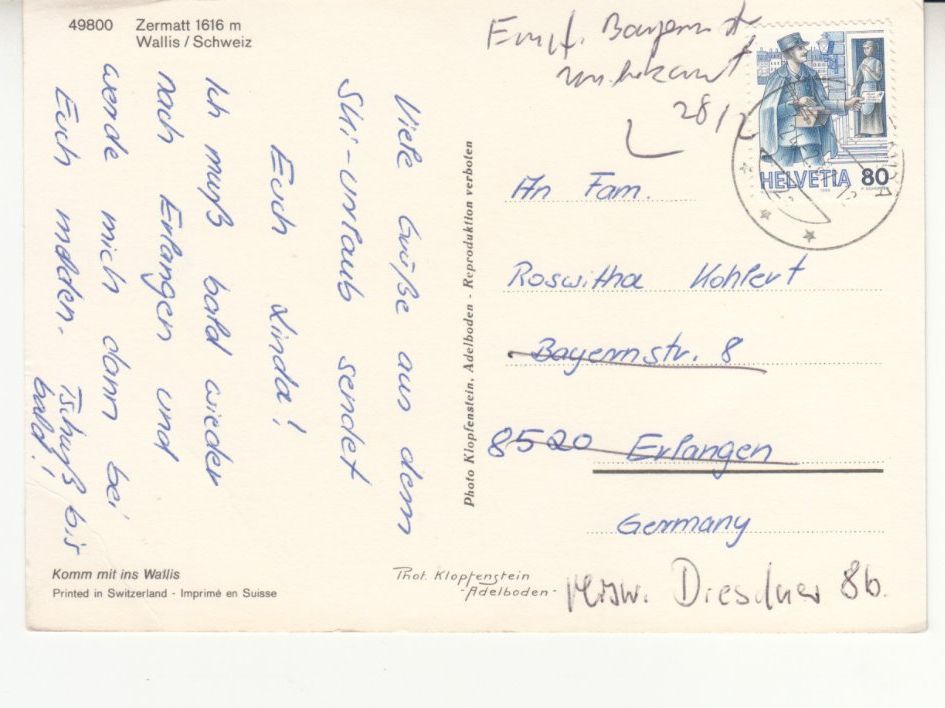 49800 Zermatt 1616 m
Wallis / Schweiz
Viele Grüße aus dem
Ski-urlaub sendet
Euch Linda!
Ich muß bald wieder
nach Erlangen und
werde mich dann bei
Euch melden.
Tschüß bis
bald!
Komm mit ins Wallis
Printed in Switzerland - Imprimé en Suisse
Photo Klopfenstein, Adelboden - Reproduktion verboten
Phot. Klopfenstein
- Adelboden -
Empf. Bayernstr
unbekannt
28/2
HELVETIA 80
An Fam.
Roswitha Kohlert
Bayernstr. 8
8520 Erlangen
Germany
Dresdner 8b.